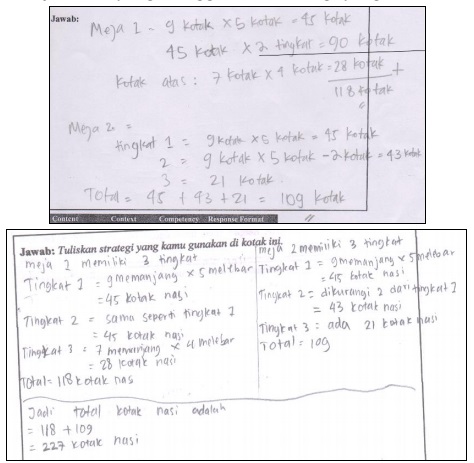 Jawab:
Meja 1 = 9 kotak × 5 kotak = 45 kotak
45 kotak × 2 tingkat = 90 kotak
kotak atas : 7 kotak × 4 kotak = 28 kotak +
118 kotak
Meja 2 =
tingkat 1 = 9 kotak × 5 kotak = 45 kotak
2 = 9 kotak × 5 kotak - 2 kotak = 43 kotak
3 = 21 kotak
Total = 45 + 43 + 21 = 109 kotak
Content Context Competency Response Format
Jawab: Tuliskan strategi yang kamu gunakan di kotak ini.
meja 1 memiliki 3 tingkat
Tingkat 1 = 9 memanjang × 5 melebar
= 45 kotak nasi
Tingkat 2 = sama seperti tingkat 1
= 45 kotak nasi
Tingkat 3 = 7 memanjang × 4 melebar
= 28 kotak nasi
Total = 118 kotak nas
meja 2 memiliki 3 tingkat
Tingkat 1 = 9 memanjang × 5 melebar
= 45 kotak nasi
Tingkat 2 = dikurangi 2 dari tingkat 1
= 43 kotak nasi
Tingkat 3 = ada 21 kotak nasi
Total = 109
Jadi total kotak nasi adalah
= 118 + 109
= 227 kotak nasi